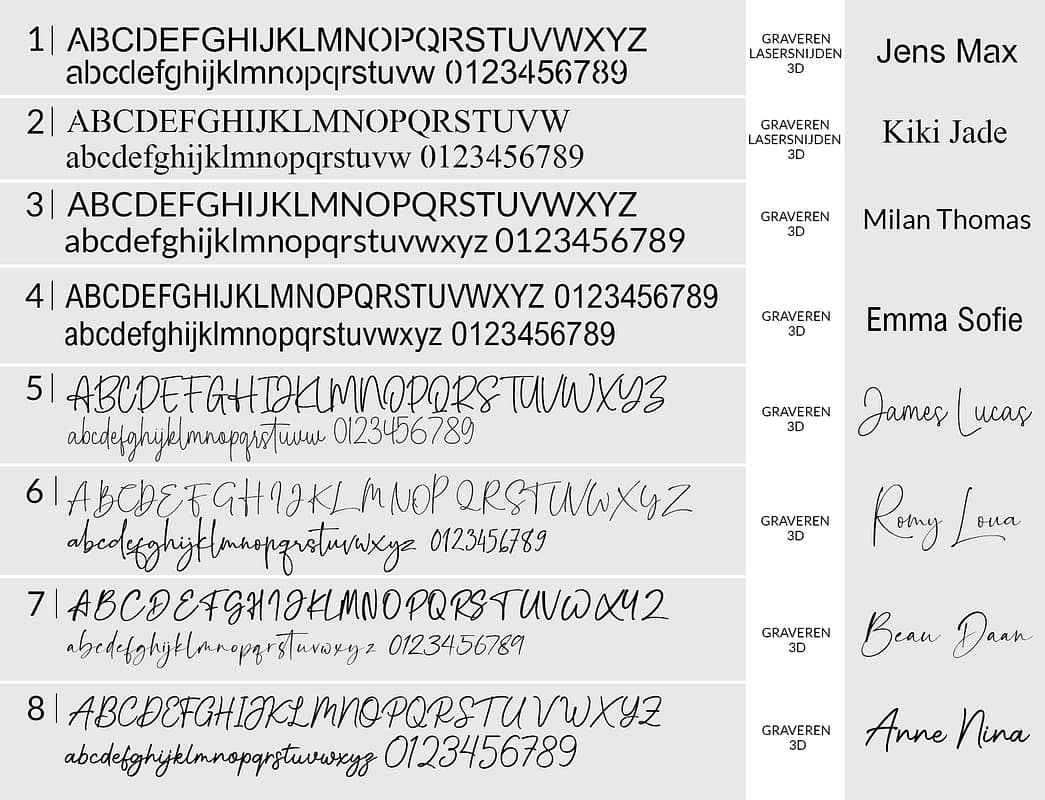 1| ABCDEFGHIJKLMNOPQRSTUVWXYZ
abcdefghijklmnopqrstuvw 0123456789
GRAVEREN
LASERSNIJDEN
3D
Jens Max
2| ABCDEFGHIJKLMNOPQRSTUVW
abcdefghijklmnopqrstuvw 0123456789
GRAVEREN
LASERSNIJDEN
3D
Kiki Jade
3| ABCDEFGHIJKLMNOPQRSTUVWXYZ
abcdefghijklmnopqrstuvwxyz 0123456789
GRAVEREN
3D
Milan Thomas
4| ABCDEFGHIJKLMNOPQRSTUVWXYZ 0123456789
abcdefghijklmnopqrstuvwxyz 0123456789
GRAVEREN
3D
Emma Sofie
5| ABCDEFGHIJKLMNOPQRSTUVWXYZ
abcdefghijklmnopqrstuvw 0123456789
GRAVEREN
3D
James Lucas
6| ABCDEFGHIJKLMNOPQRSTUVWXYZ
abcdefghijklmnopqrstuvwxyz 0123456789
GRAVEREN
3D
Romy Loua
7| ABCDEFGHIJKLMNOPQRSTUVWXYZ
abcdefghijklmnopqrstuvwxyz 0123456789
GRAVEREN
3D
Beau Daan
8| ABCDEFGHIJKLMNOPQRSTUVWXYZ
abcdefghijklmnopqrstuvwxyz 0123456789
GRAVEREN
3D
Anne Nina